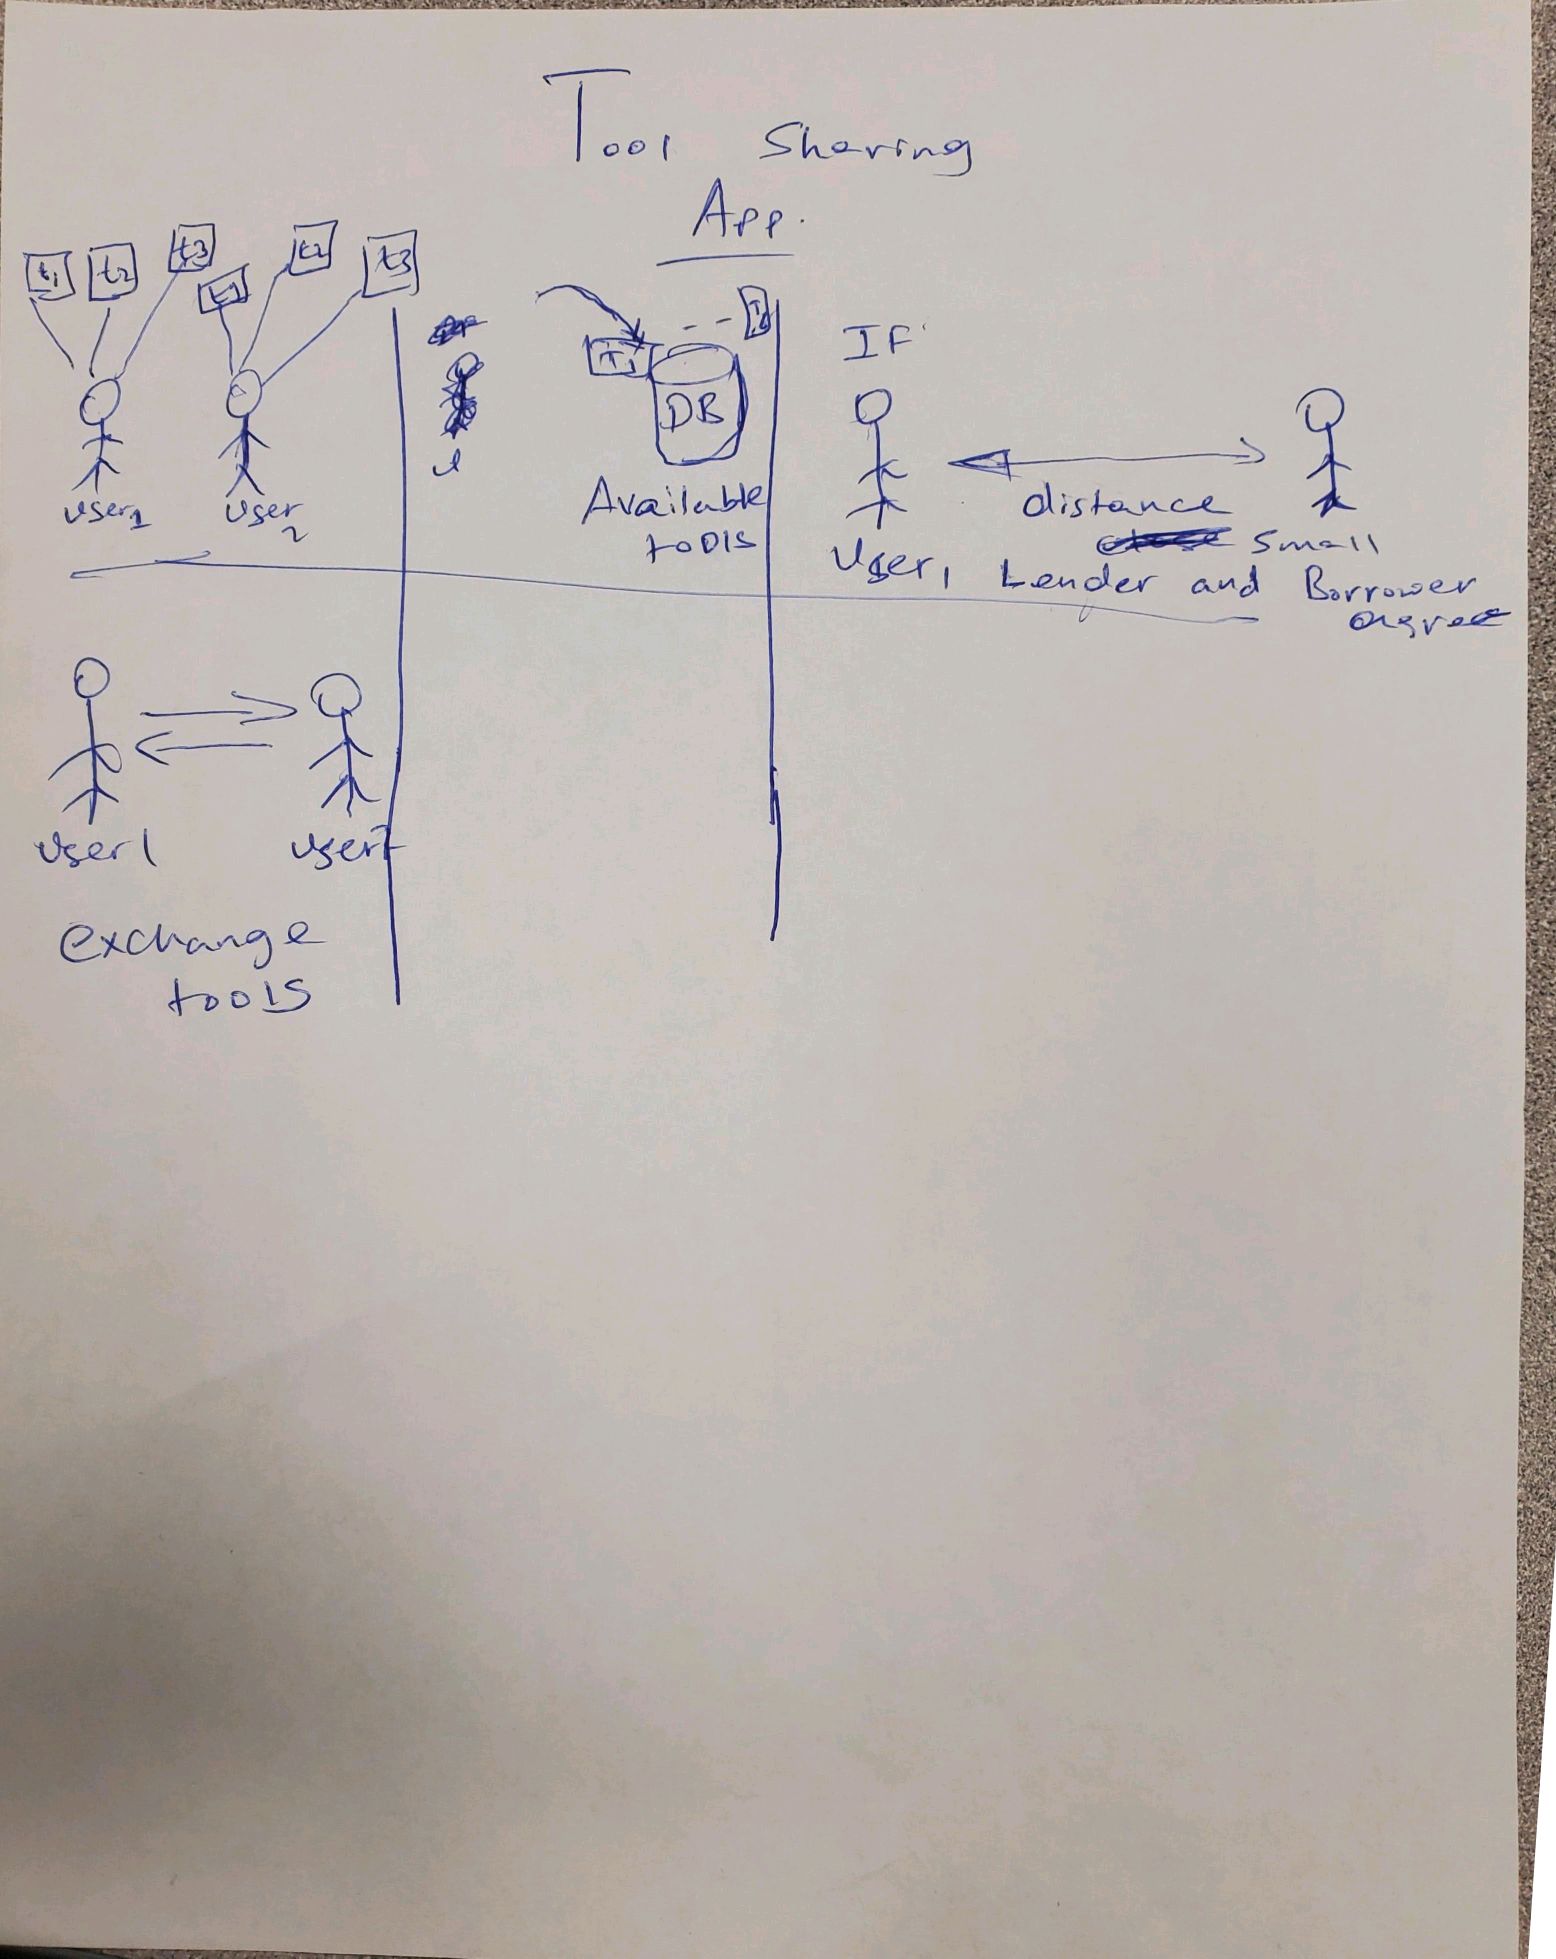 Tool Sharing
App.
t1 t2 t3 t1 t2 t3
user1 user2
T1 --
DB
Available
tools
IF
distance
small
User1 Lender and Borrower
agree
user1 user2
exchange
tools